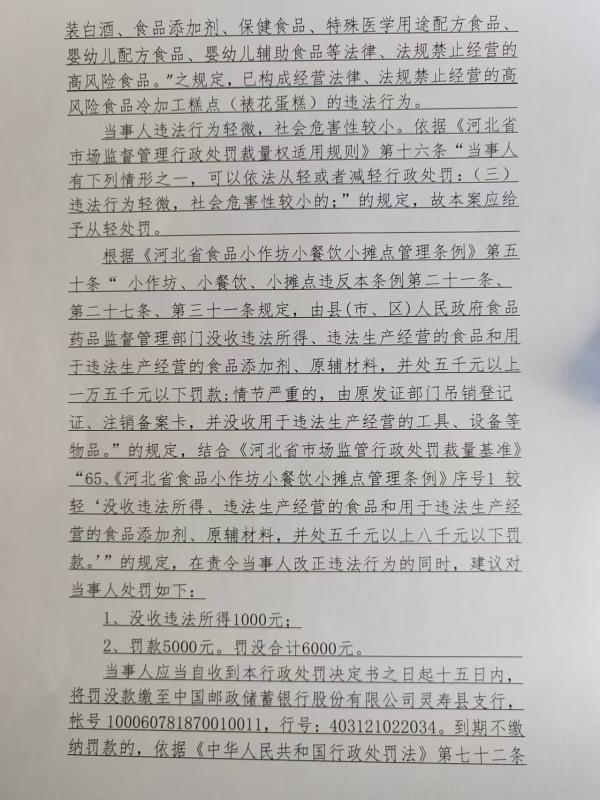 装白酒、食品添加剂、保健食品、特殊医学用途配方食品、
婴幼儿配方食品、婴幼儿辅助食品等法律、法规禁止经营的
高风险食品。”之规定，已构成经营法律、法规禁止经营的高
风险食品冷加工糕点（裱花蛋糕）的违法行为。
当事人违法行为轻微，社会危害性较小。依据《河北省
市场监督管理行政处罚裁量权适用规则》第十六条“当事人
有下列情形之一，可以依法从轻或者减轻行政处罚：（三）
违法行为轻微，社会危害性较小的；”的规定，故本案应给
予从轻处罚。
根据《河北省食品小作坊小餐饮小摊点管理条例》第五
十条“ 小作坊、小餐饮、小摊点违反本条例第二十一条、
第二十七条、第三十一条规定，由县(市、区)人民政府食品
药品监督管理部门没收违法所得、违法生产经营的食品和用
于违法生产经营的食品添加剂、原辅材料，并处五千元以上
一万五千元以下罚款;情节严重的，由原发证部门吊销登记
证、注销备案卡，并没收用于违法生产经营的工具、设备等
物品。”的规定，结合《河北省市场监管行政处罚裁量基准》
“65、《河北省食品小作坊小餐饮小摊点管理条例》序号1 较
轻‘没收违法所得、违法生产经营的食品和用于违法生产经
营的食品添加剂、原辅材料，并处五千元以上八千元以下罚
款。’”的规定，在责令当事人改正违法行为的同时，建议对
当事人处罚如下：
1、没收违法所得1000元；
2、罚款5000元。罚没合计6000元。
当事人应当自收到本行政处罚决定书之日起十五日内，
将罚没款缴至中国邮政储蓄银行股份有限公司灵寿县支行，
帐号100060781870010011，行号：403121022034。到期不缴
纳罚款的，依据《中华人民共和国行政处罚法》第七十二条